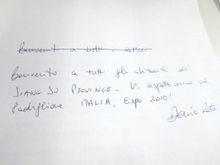 Benvenuti a tutti,
Benvenuto a tutti gli abitanti di
JIANG SU PROVINCE. Vi aspettiamo al
Padiglione ITALIA, Expo 2010!